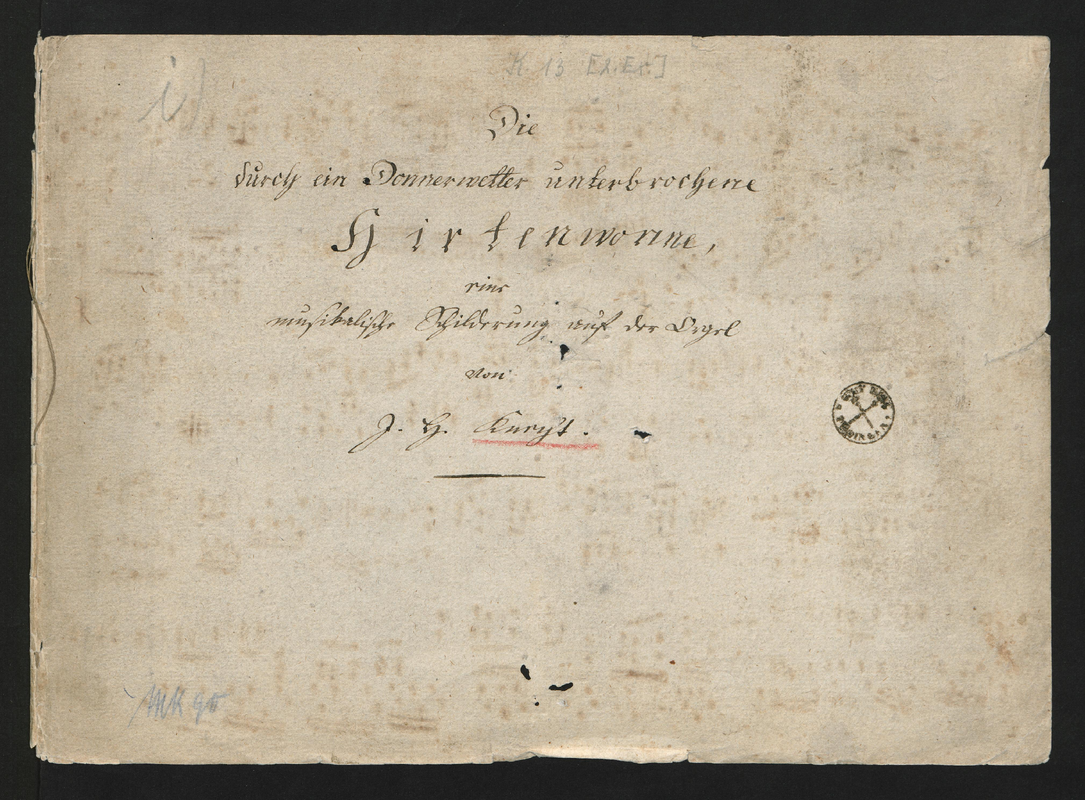 K 13
i)
Die
durch ein Donnerwetter unterbrochene
Hirtenwonne,
eine
musikalische Schilderung auf der Orgel
von
J. H. Knecht.